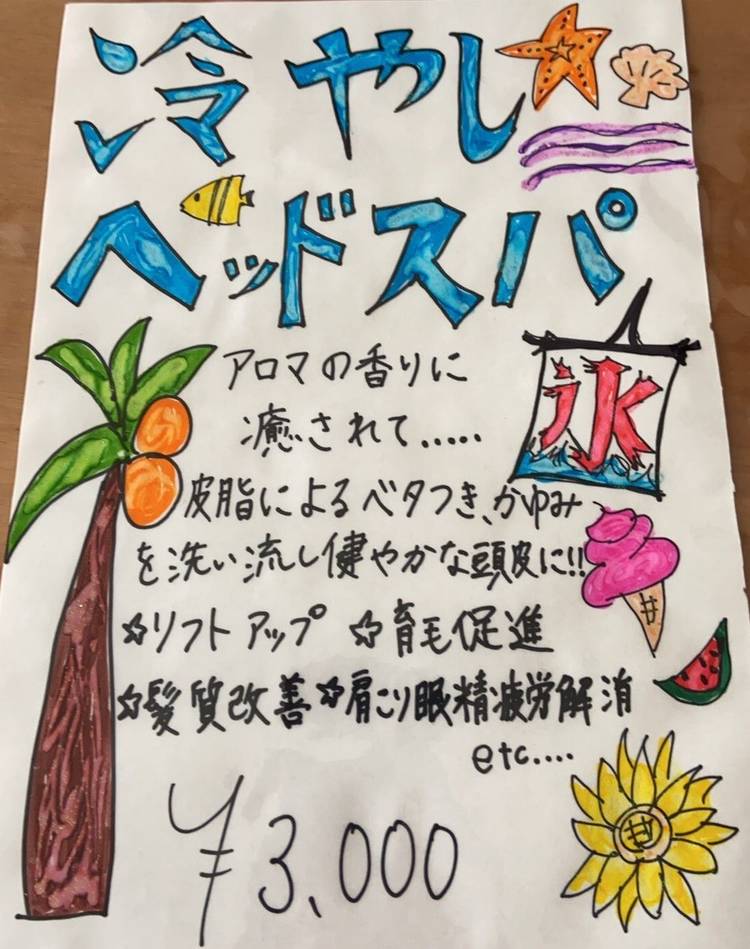 冷やし
ヘッドスパ
氷
アロマの香りに
癒されて.....
皮脂によるベタつき、かゆみ
を洗い流し健やかな頭皮に!!
☆リフトアップ ☆育毛促進
☆髪質改善☆肩こり眼精疲労解消
etc....
¥3,000